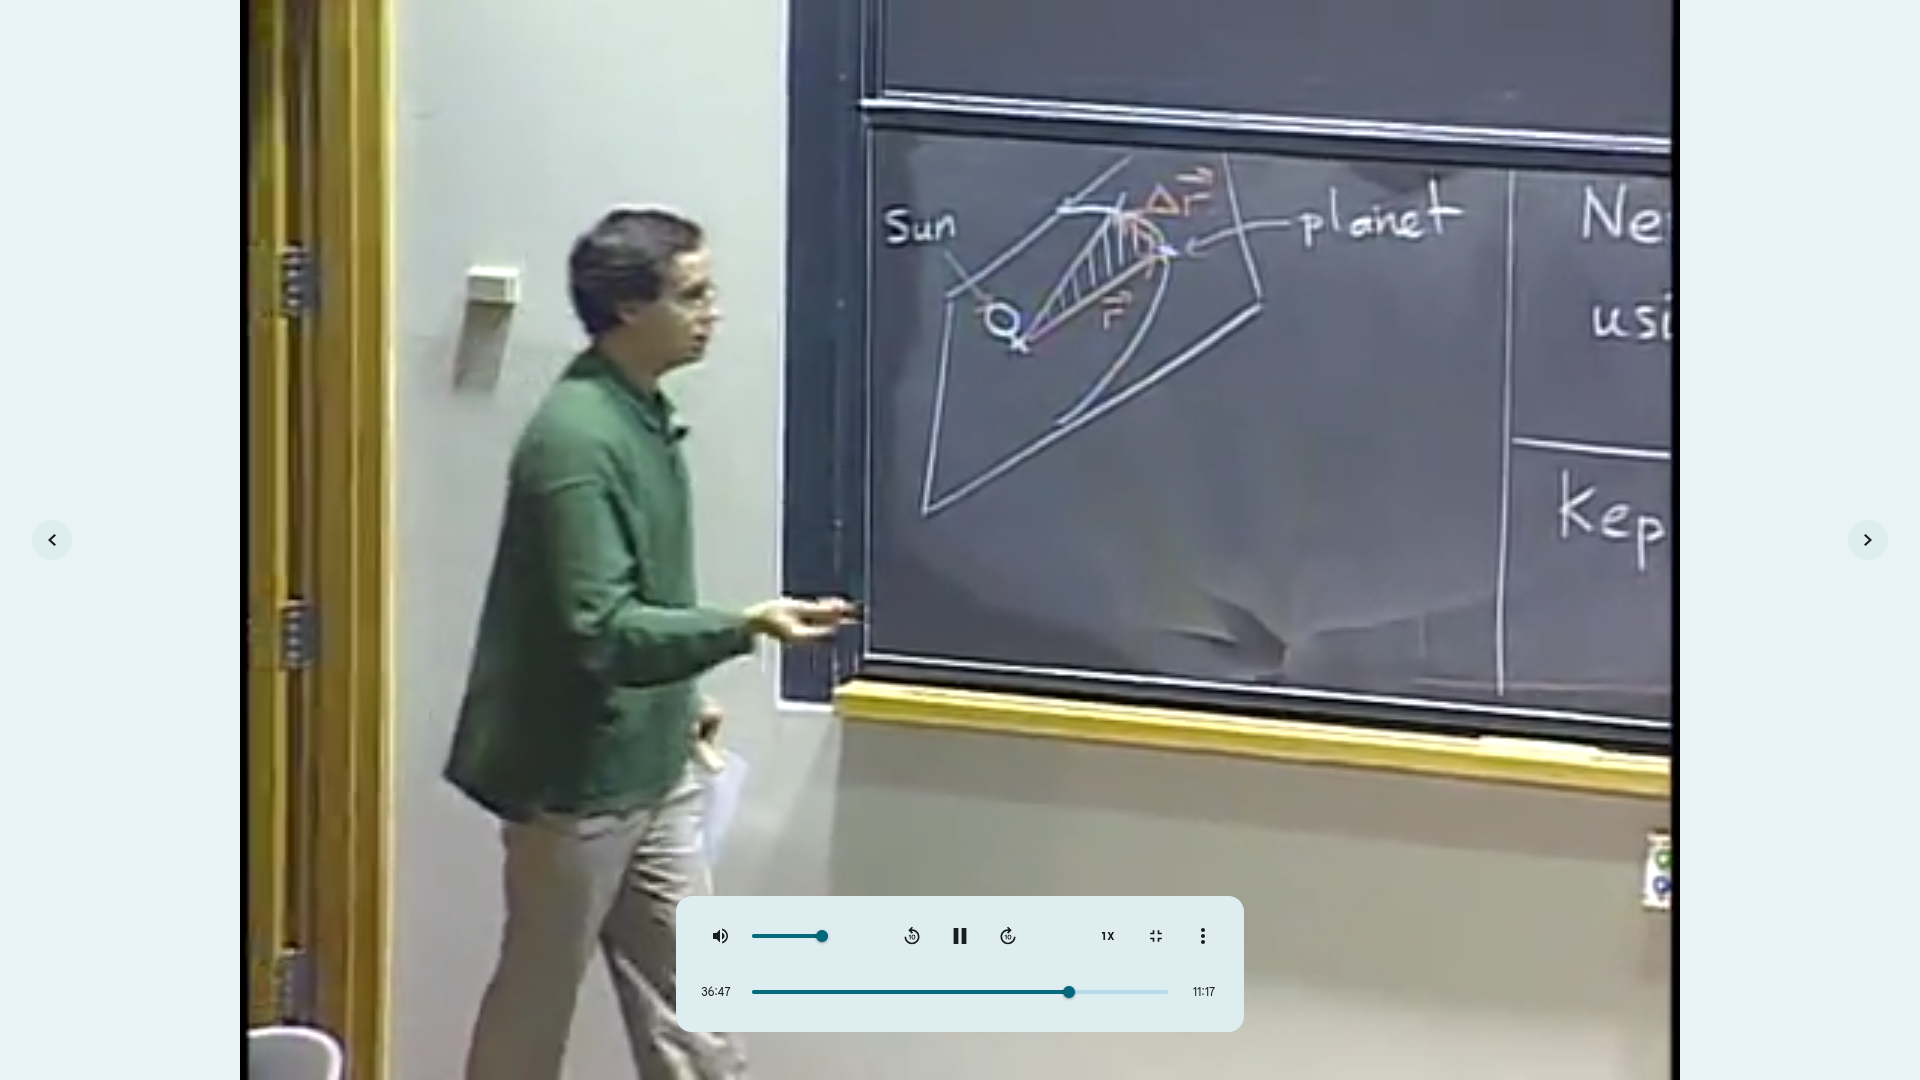 Sun
Δr
planet
r
Ne
usi
Kep
1X
36:47
11:17